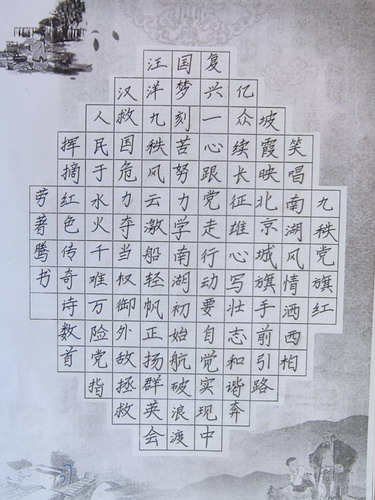 九秩党旗红
笑唱南湖风情洒西柏
坡霞映北京城旗手前引路
亿众续长征雄心写壮志和谐奔
复兴一心跟党走行动要自觉实现中
国梦刻苦努力学南湖初始航破浪渡
汪洋九秩风云激船轻帆正扬群英会
汉救国危力夺当权御外敌拯救
人民于水火千难万险党指
挥摘红色传奇诗数首
劳著腾书